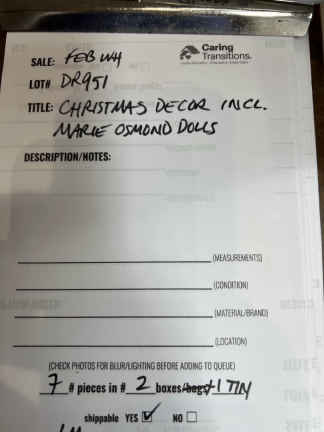 Caring
Transitions
SALE: FEB WH
LOT# DR951
TITLE: CHRISTMAS DECOR INCL.
MARIE OSMOND DOLLS
DESCRIPTION/NOTES:
(MEASUREMENTS)
(CONDITION)
(MATERIAL/BRAND)
(LOCATION)
(CHECK PHOTOS FOR BLUR/LIGHTING BEFORE ADDING TO QUEUE)
7 # pieces in # 2 boxes/bags/1 TIN
shippable YES NO